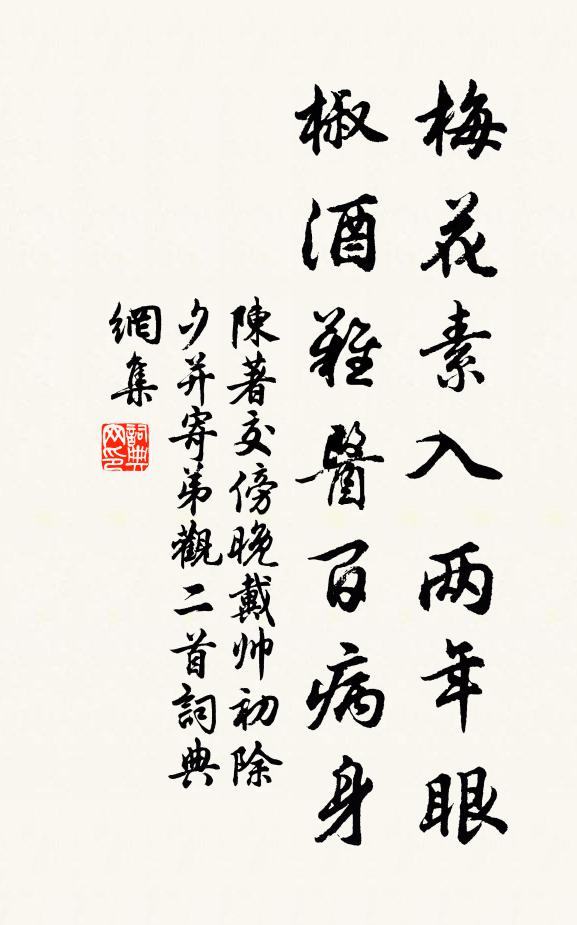 梅花素入两年眼
椒酒難醫百病身
陳著交傍晚戴帅初除
夕并寄弟觀二首詞典
網集
詞典
网印